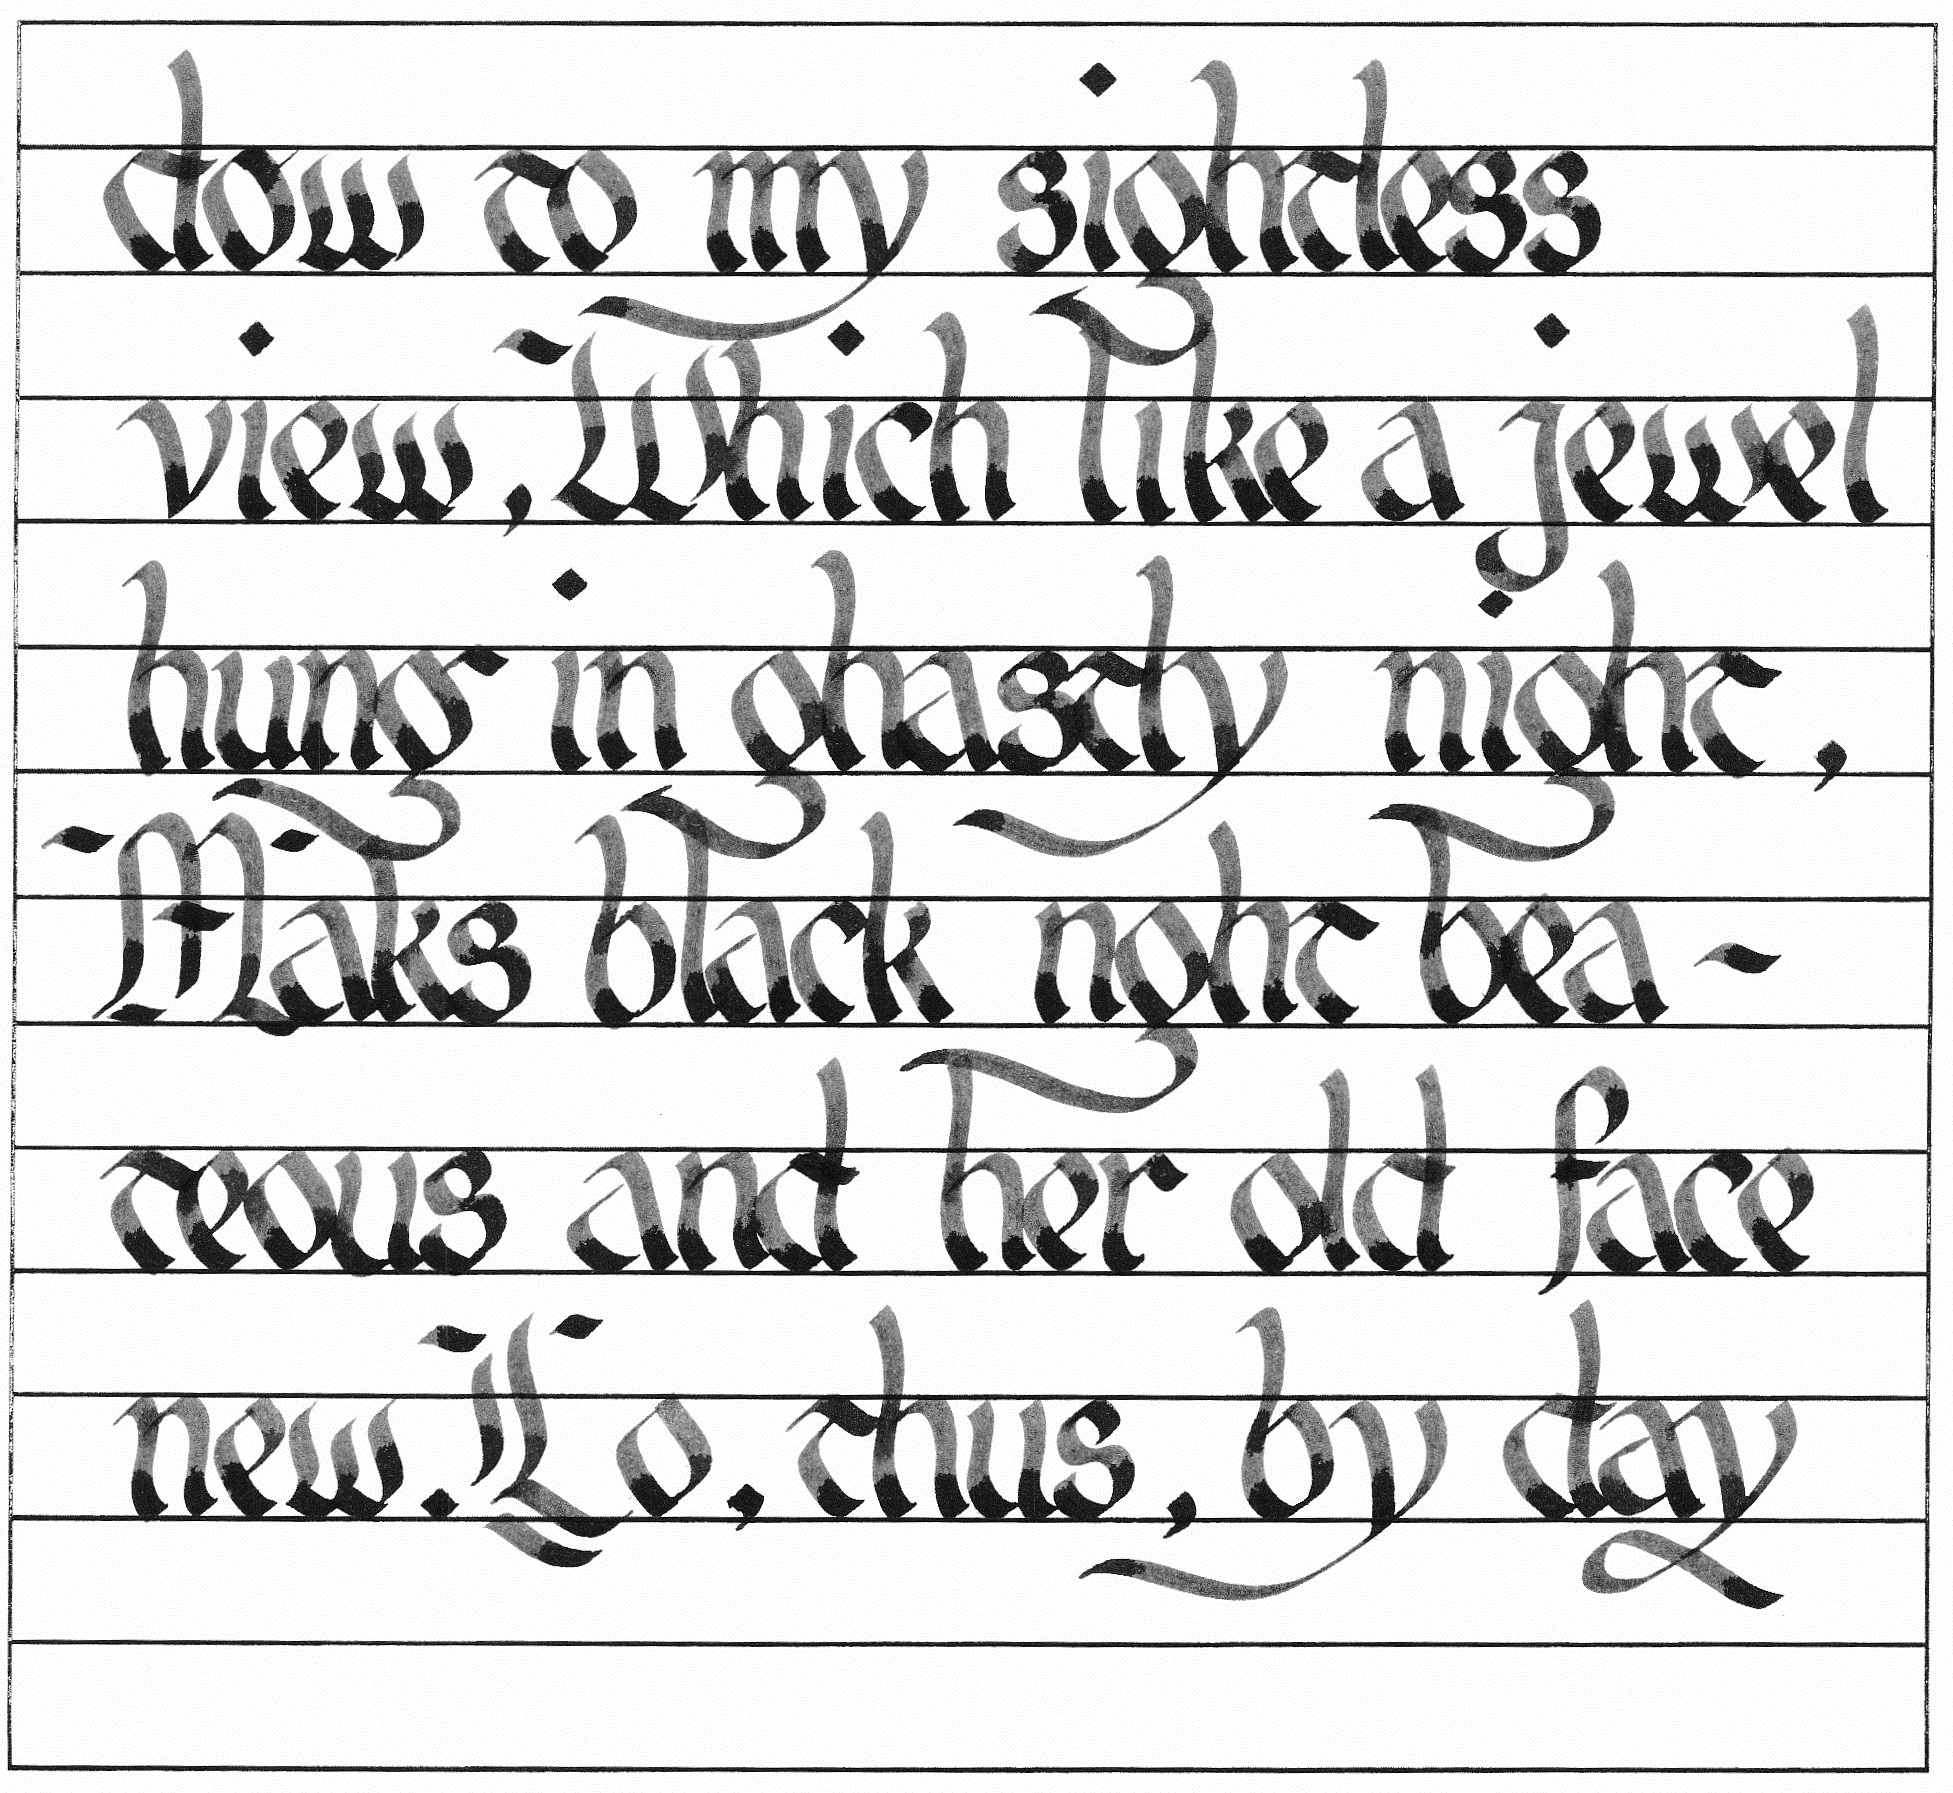 dow to my sightless
view, Which like a jewel
hung in ghastly night,
Maks black nght bea-
teous and her old face
new. Lo, thus, by day